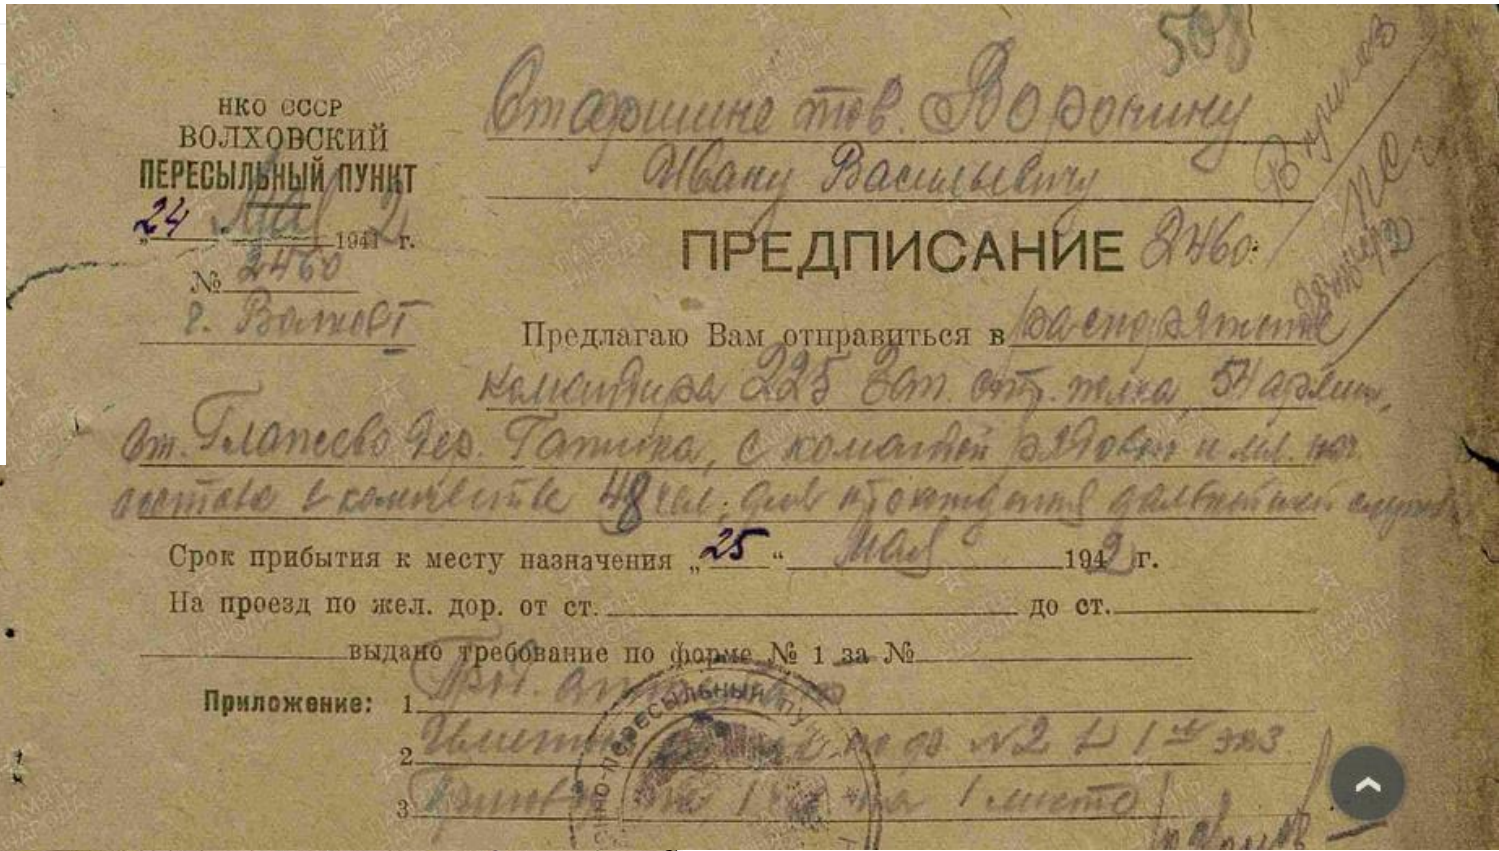 508
НКО СССР
ВОЛХОВСКИЙ
ПЕРЕСЫЛЬНЫЙ ПУНКТ
„24 Мая 1942 г.
№ 2460
г. Волхов
Старшине тов. Воронину
Ивану Васильевичу
ПРЕДПИСАНИЕ 2460
Предлагаю Вам отправиться в распоряжение
командира 225 Зап. стр. полка, 54 армии,
ст. Глажево дер. Гатика, с командой рядового и мл. нач.
состава в количестве 48 чел. для прохождения дальнейшей службы
Срок прибытия к месту назначения „25“ мая 1942 г.
На проезд по жел. дор. от ст. до ст.
выдано требование по форме № 1 за №
Приложение: 1 Прод. аттестат
2 Именной по ф. №2 в 1 экз
3 на 1 листе
ПЕРЕСЫЛЬНЫЙ ПУ